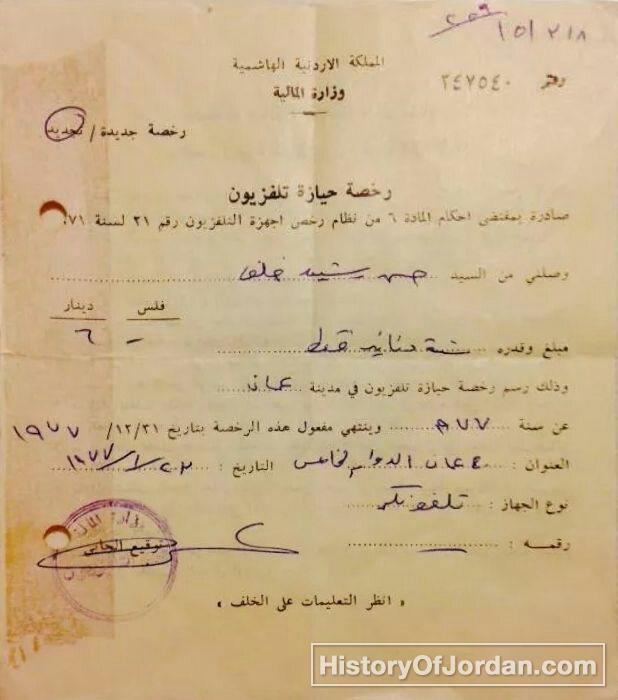 ١٥/٢١٨
المملكة الاردنية الهاشمية
وزارة المالية
رقم ٢٤٧٥٤٠
رخصة جديدة / تجديد
رخصة حيازة تلفزيون
صادرة بمقتضى احكام المادة ٦ من نظام رخص اجهزة التلفزيون رقم ٢١ لسنة ٧١.
وصلني من السيد حسن رشيد خلف
فلس دينار
مبلغ وقدره ستة دنانير فقط - ٦
وذلك رسم رخصة حيازة تلفزيون في مدينة عمان
عن سنة ٩٧٧ وينتهي مفعول هذه الرخصة بتاريخ ١٢/٣١/ ١٩٧٧
العنوان : عمان الدوار الخامس التاريخ : ١٩٧٧/١/٢٣
نوع الجهاز : تلفونكن
رقمه : —
توقيع الجابي
وزارة المالية
« انظر التعليمات على الخلف »
HistoryOfJordan.com